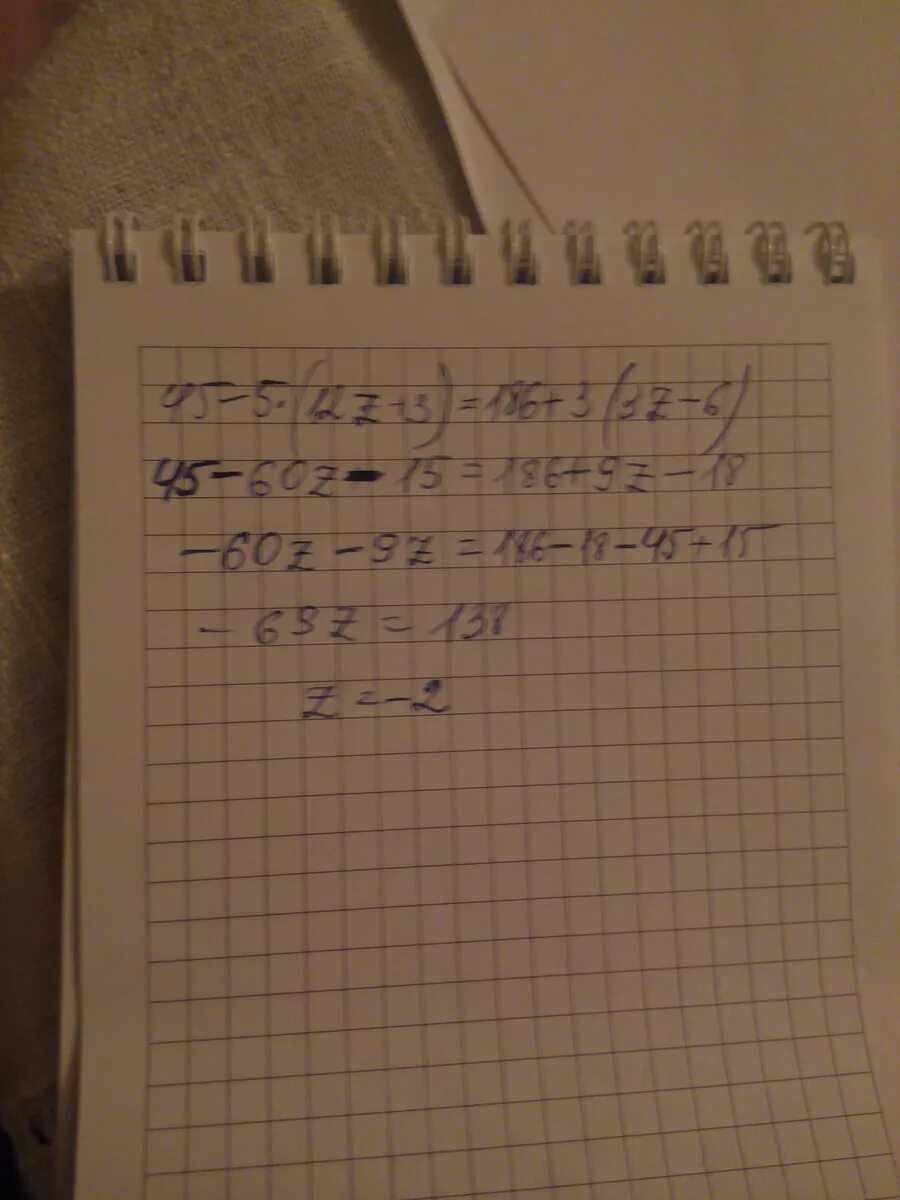 45-5·(12z+3)=186+3(3z-6)
45-60z-15=186+9z-18
-60z-9z=186-18-45+15
-69z=138
z=-2